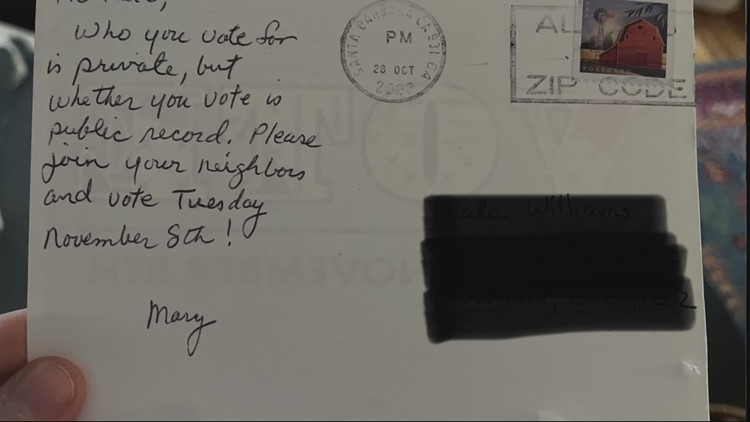 Who you vote for
is private, but
whether you vote is
public record. Please
join your neighbors
and vote Tuesday
November 8th!
Mary
SANTA BARBARA CA 931
PM
28 OCT
2022
ZIP CODE